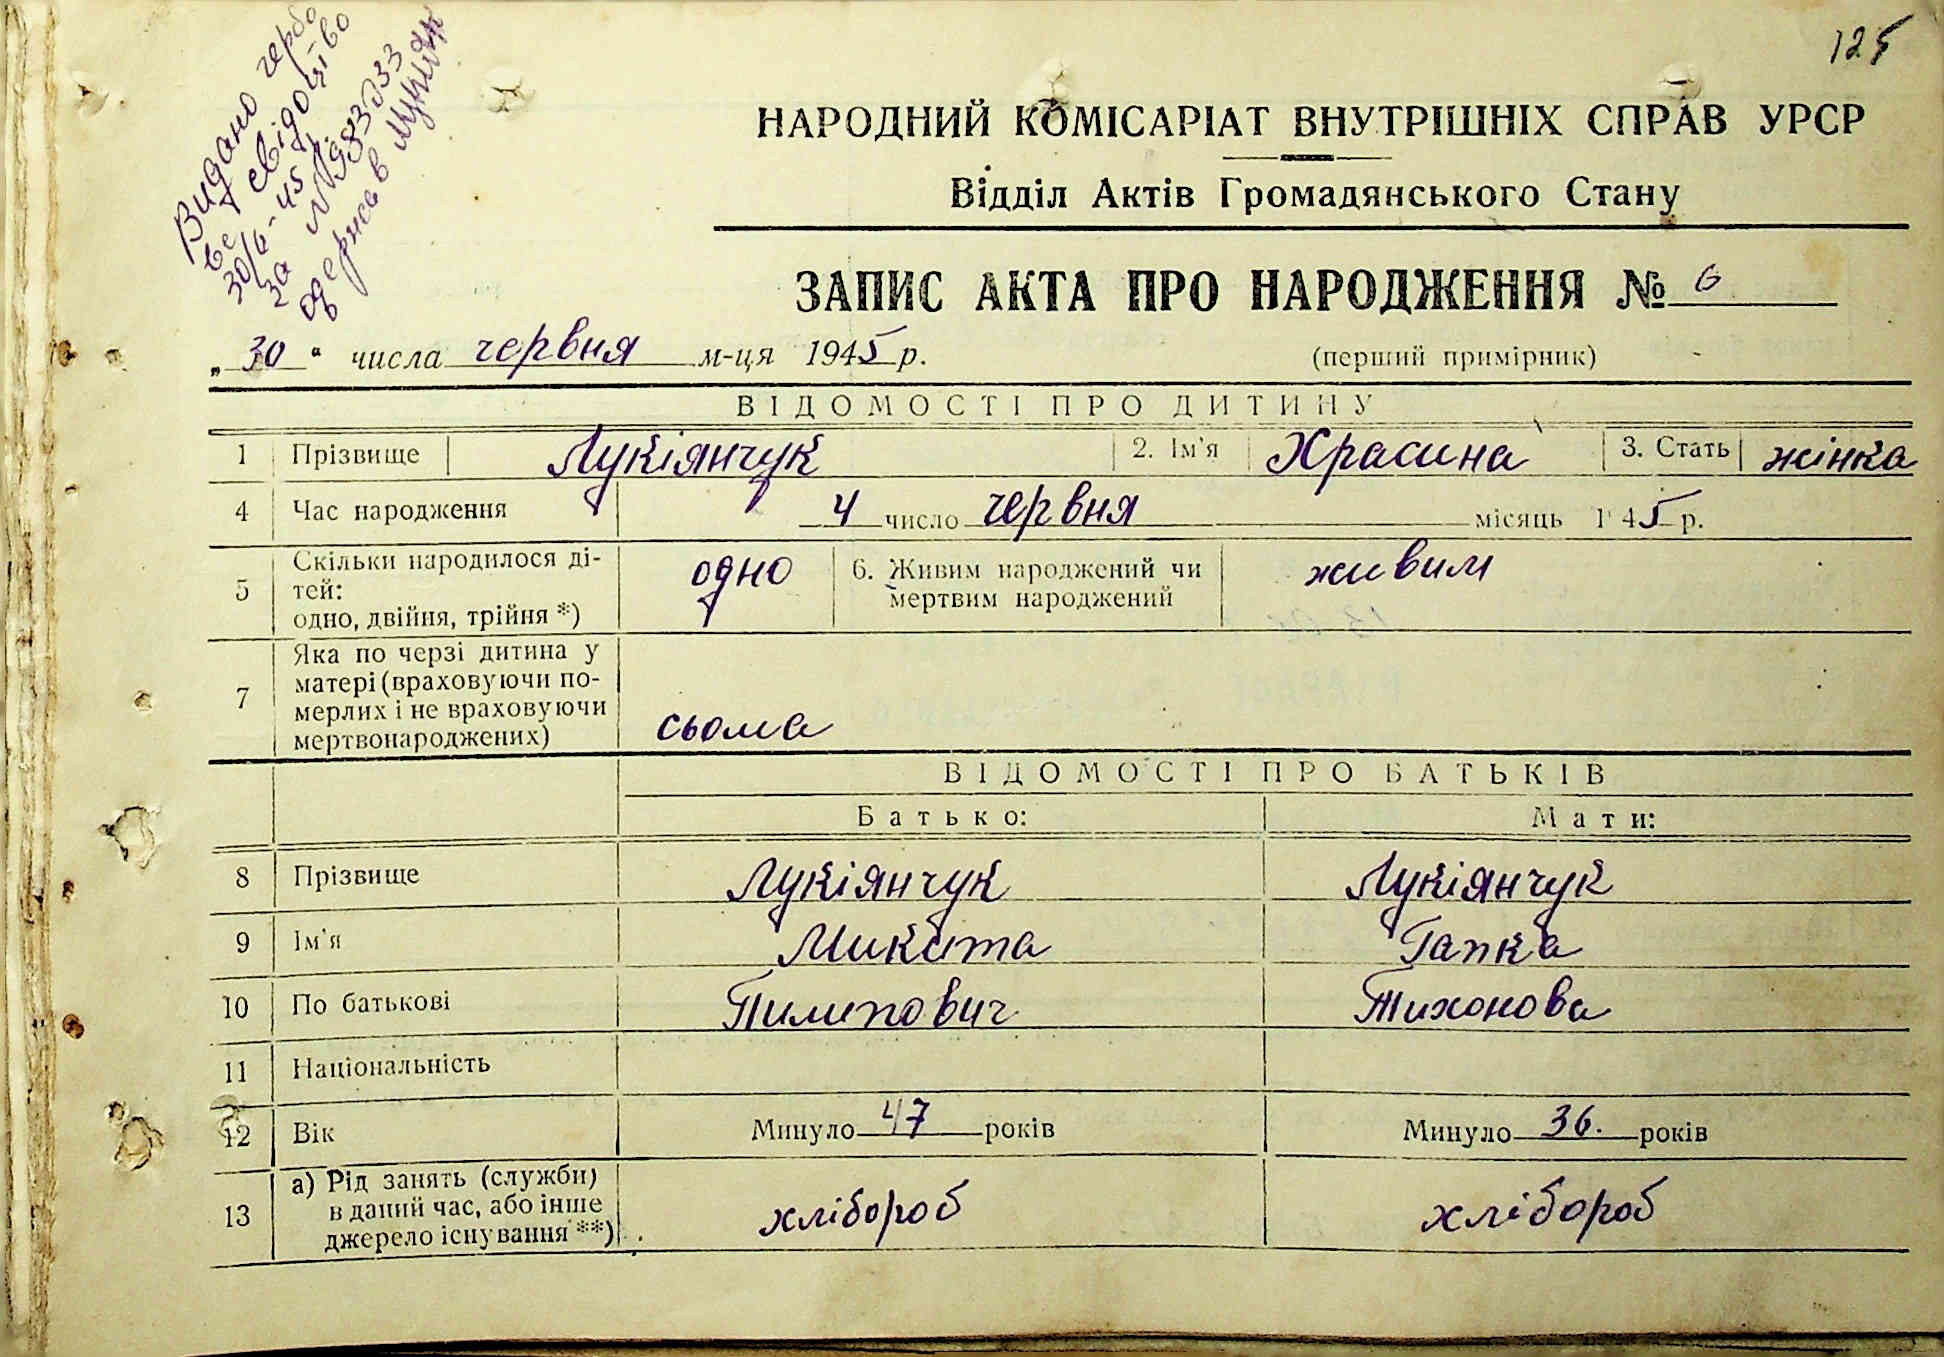 125
Видано гербо
ве свідоцтво
30/6-45 р.
за №
НАРОДНИЙ КОМІСАРІАТ ВНУТРІШНІХ СПРАВ УРСР
Відділ Актів Громадянського Стану
ЗАПИС АКТА ПРО НАРОДЖЕННЯ № 6
„30“ числа червня м-ця 1945 р. (перший примірник)
ВІДОМОСТІ ПРО ДИТИНУ
1 Прізвище Лукіянчук 2. Ім'я Красина 3. Стать жінка
4 Час народження 4 число червня місяць 1945 р.
5 Скільки народилося ді-
тей:
одно, двійня, трійня *) одно 6. Живим народжений чи
мертвим народжений живим
7 Яка по черзі дитина у
матері (враховуючи по-
мерлих і не враховуючи
мертвонароджених) сьома
ВІДОМОСТІ ПРО БАТЬКІВ
Батько: Мати:
8 Прізвище Лукіянчук Лукіянчук
9 Ім'я Микита Гапка
10 По батькові Пилипович Тихонова
11 Національність
12 Вік Минуло 47 років Минуло 36. років
13 а) Рід занять (служби)
в даний час, або інше
джерело існування **) хлібороб хлібороб